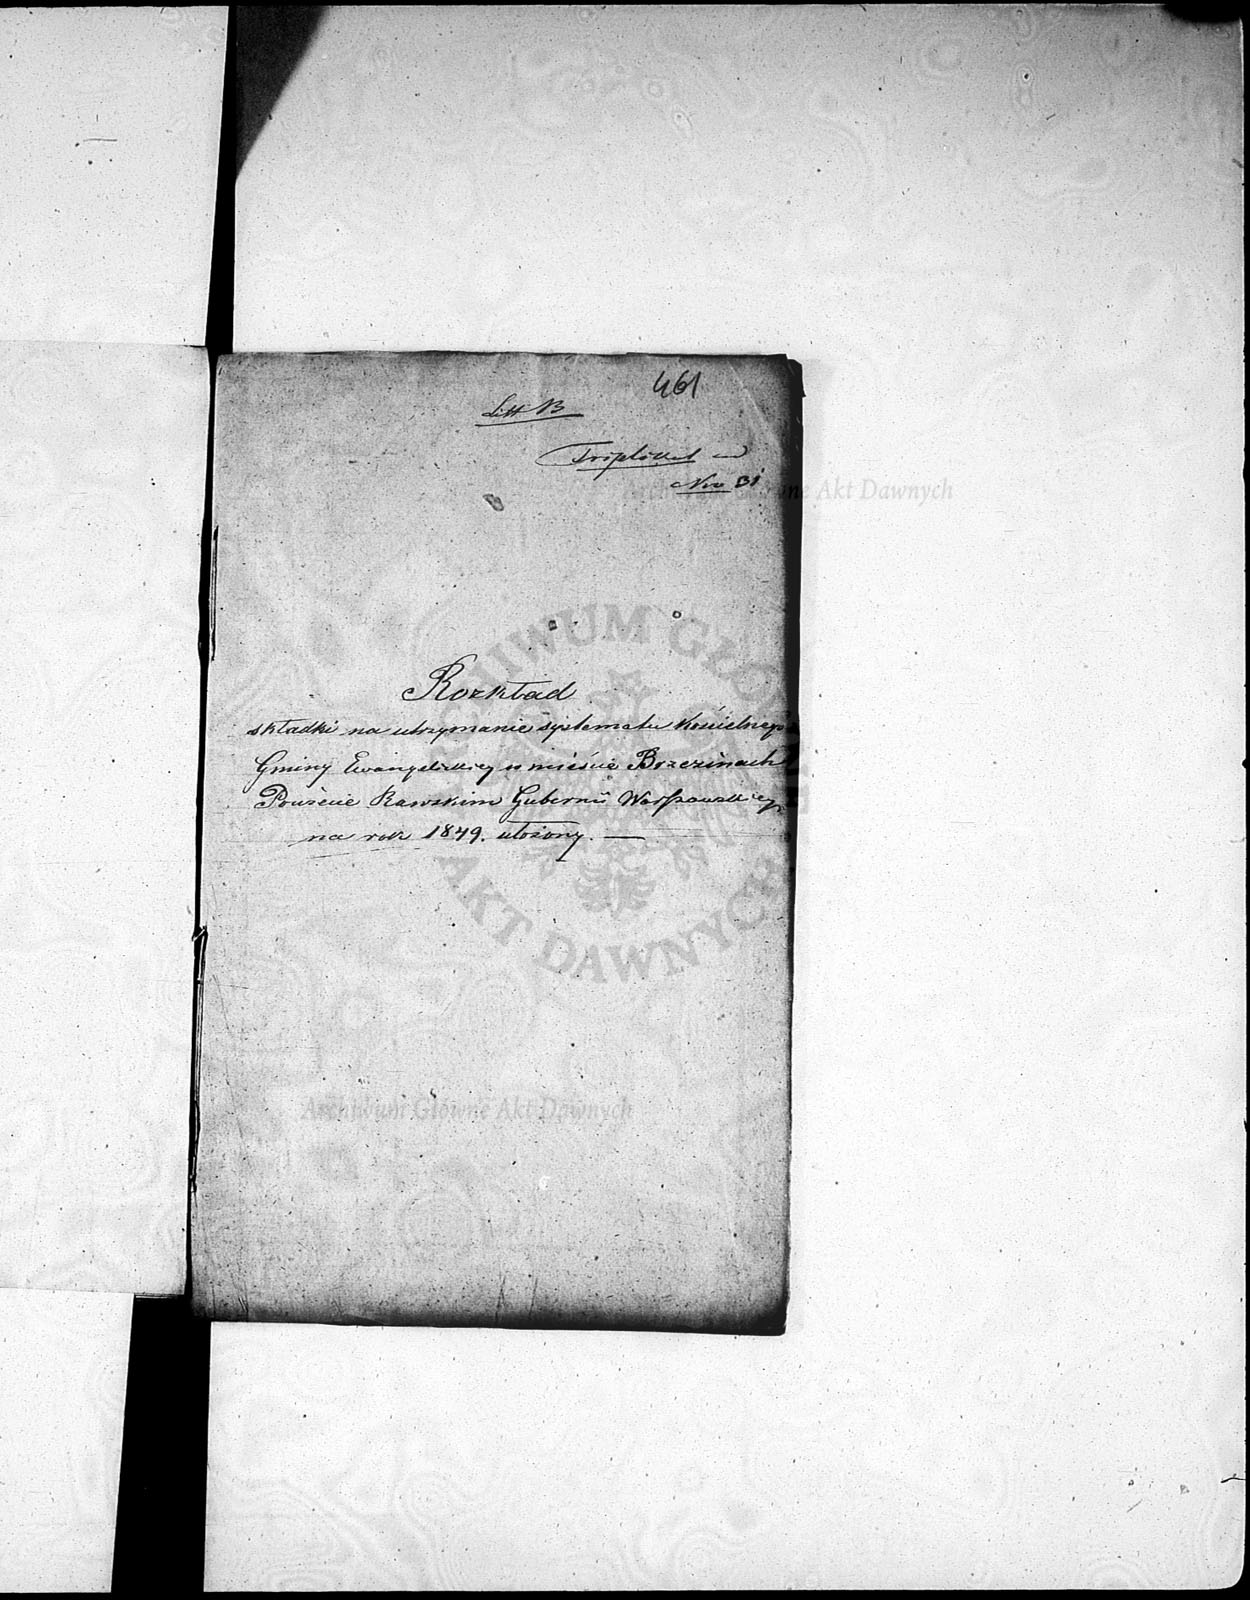 461
Litt B
Triplikat ad
Nro 31
Rozkład
składki na utrzymanie systematu Kościelnego
Gminy Ewangelickiey w mieście Brzezinach
Powiecie Rawskim Gubernii Warszawskiey
na rok 1849. ułożony. —
Archiwum Główne Akt Dawnych
ARCHIWUM GŁÓWNE
AKT DAWNYCH
Archiwum Główne Akt Dawnych